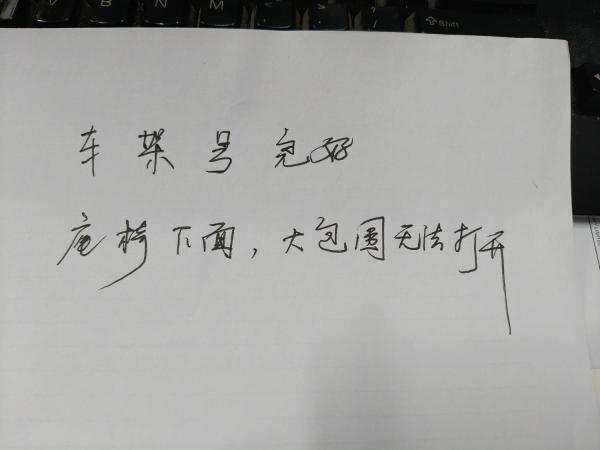 V B N M < > ? Shift
车架号完好
座椅下面，大包围无法打开